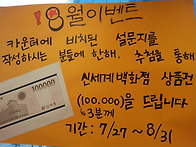 18월이벤트
카운터에 비치된 설문지를
작성하시는 분들에 한해, 추첨을 통해
신세계 백화점 상품권
100000
(100,000)을 드립니다
*3분께
기간: 7/27 ~ 8/31